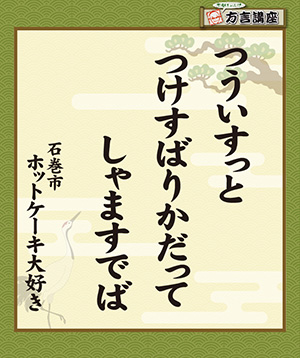 方言講座
つういすっと
つけすばりかだって
しゃますでば
石巻市
ホットケーキ大好き